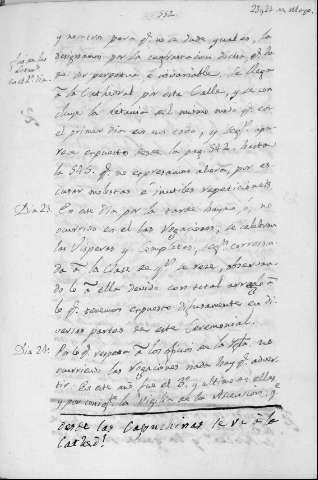 552.
23, y 24 de Mayo.
y remisos para qe. no se dude qual es, la
designamos por la comprobacion dicha qe. la
da de perpetua é invariable. Se llega
à la Cathedral por esta Calle, y se con-
cluye la Letania del mismo modo qe. en
el primer dia en su caso, y segn.
expuesto desde la pag. 542. hasta
la 545. qe. no expresamos ahora, por es-
cusar molestas é inutiles repeticiones.
Dia 23.
En este dia por la tarde haya, ó, no
ocurrido en el las Rogaciones, se celebran
las Visperas y Completas, segn. correspon-
da à la Clase de qn. se reze, observan-
do lo à ella devido con total arreglo à
lo qe. tenemos expuesto difusamente en di-
versas partes de este Ceremonial.
Dia 24.
Por lo qe. respeta à los oficios en la Ygla. no
ocurriendo las Rogaciones nada hay qe. adver-
tir. En este año fue el 3º. y ultimo de ellos
y por consigte. la Vigilia de la Ascension, qe.
desde las Capuchinas se va à la
Catedl.